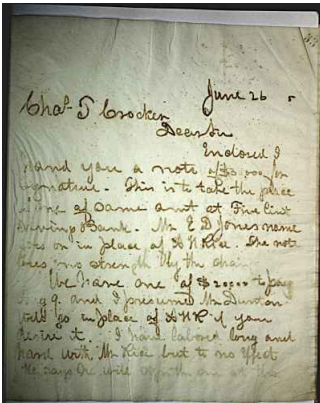 June 26
Chas T Crocker
Dear Sir
Enclosed I
hand you a note of for
signature. This is to take the place
of one of same amt at Five Cent
Savings Bank. Mr E D Jones name
on in place of The note
no strength by the
We have one of $20000 to pay
and I presume Mr
go in place of if you
desire it. I have labored long and
hard with Mr Rice but to no effect
He says he will